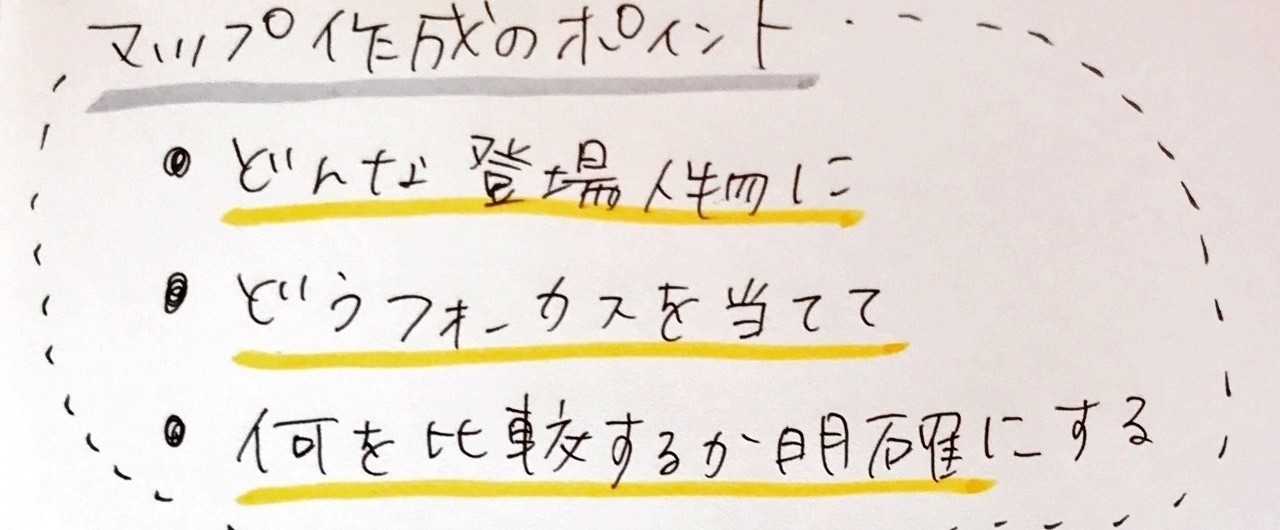 マップ作成のポイント
• どんな登場人物に
• どうフォーカスを当てて
• 何を比較するか明確にする